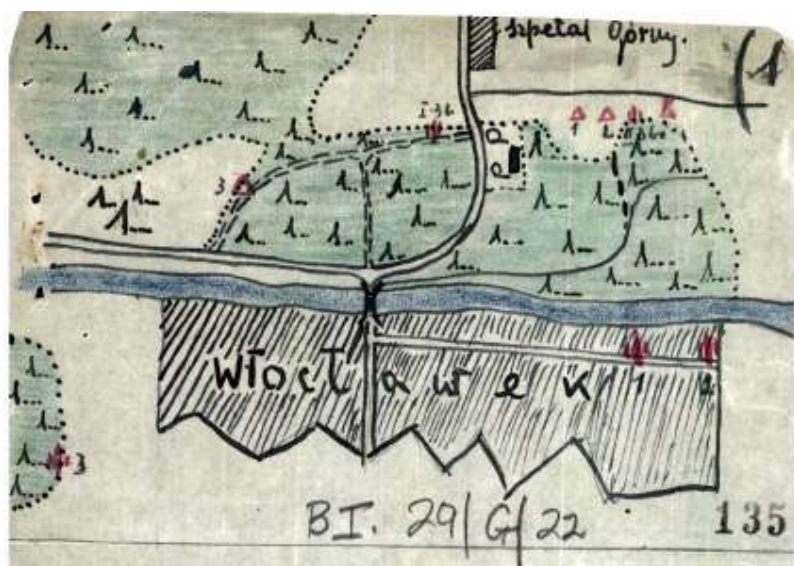 szpetal Górny.
(1
I 3b
1
2
3
Włocławek
1
2
3
B.I. 29/G/22
135